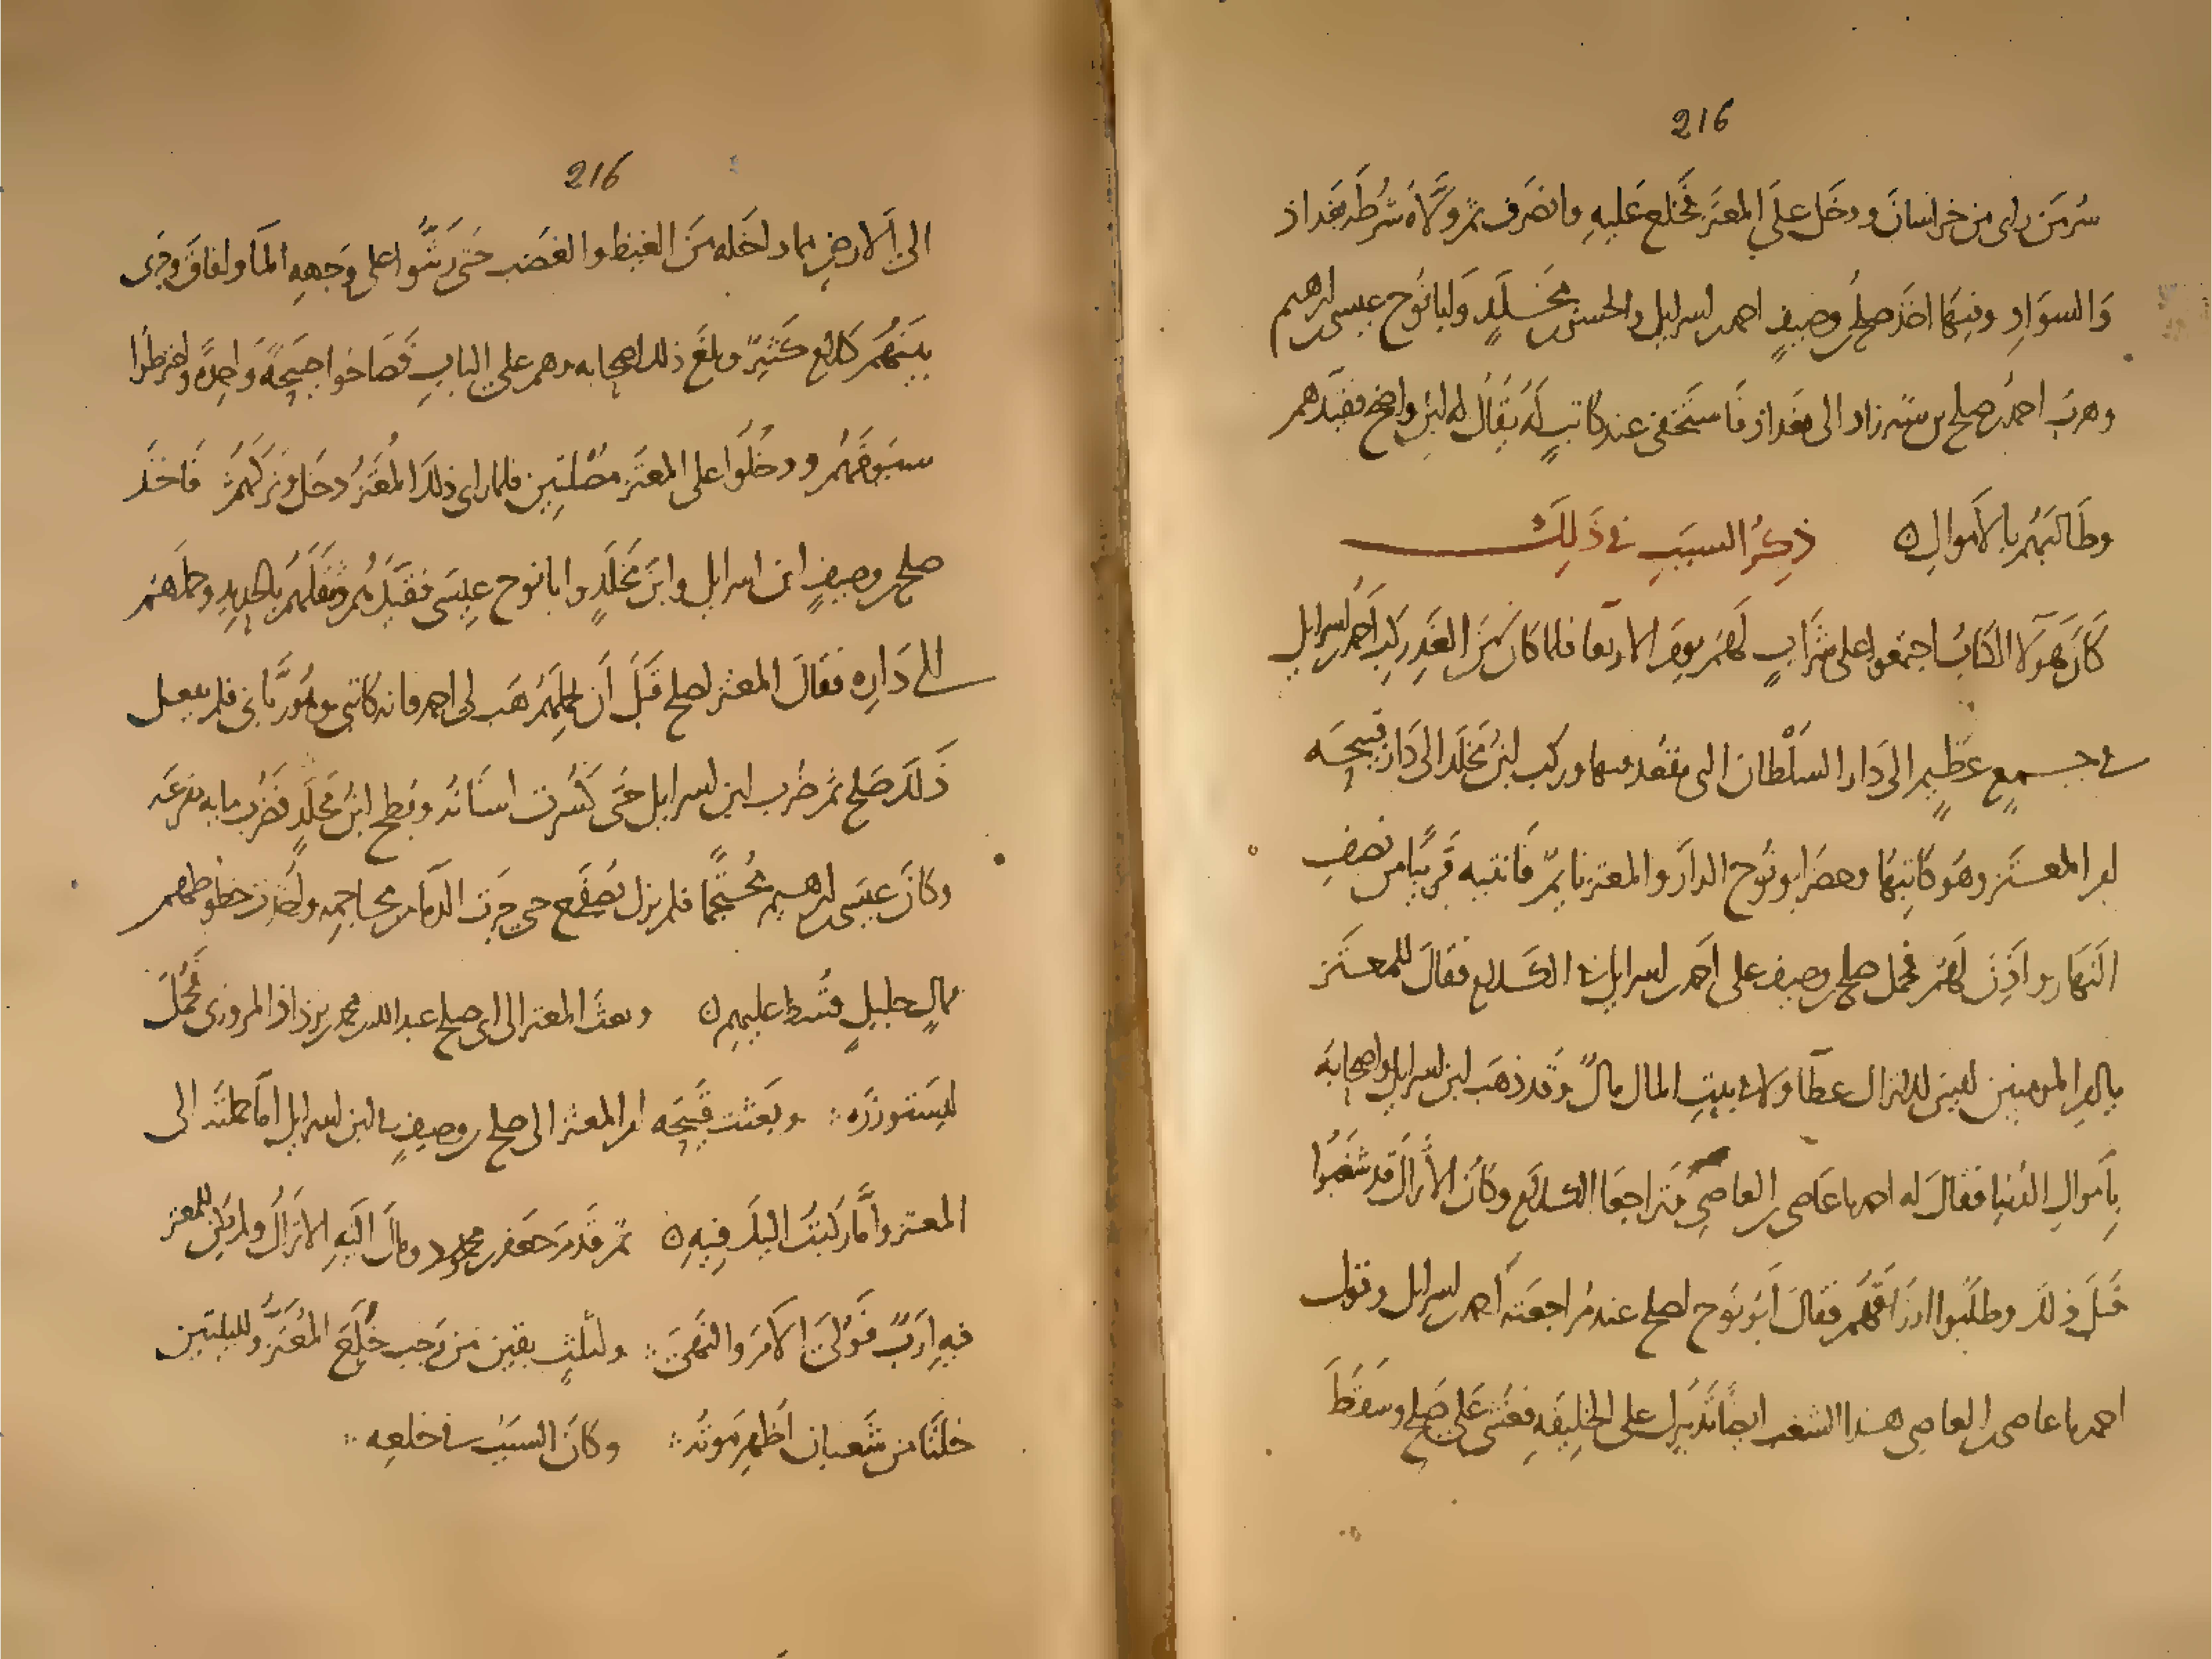 216
سُرمَن راى من خراسان ودخل على المعتز فخلع عليه وانصرف ثم ولّاه شرطة بغداذ
والسواد وفيها اخذ صلح بن وصيف احمد بن اسرايل والحسن بن مخلد وابا نوح عيسى بن ابرهيم
وهرب احمد بن صلح بن شيرزاد الى بغداذ فاستخفى عند كاتب له يقال له ابن واضح فقيدهم
وطالبهم بالاموال ن ذكر السبب في ذلك
كان هولا الكتاب اجتمعوا على شراب لهم يوم الاربعا فلما كان من الغد ركب احمد بن اسرايل
في جمع عظيم الى دار السلطان التى يقعد فيها وركب ابن مخلد الى دار قبيحه
ام المعتز وهو كاتبها وحضر ابو نوح الدار والمعتز نايم فانتبه قريبا من نصف
النهار واذن لهم فحمل صلح بن وصيف على احمد بن اسرايل في الكلام فقال للمعتز
يا امير المومنين ليس للاتراك عطا ولا في بيت المال مال وقد ذهب ابن اسرايل واصحابه
باموال الدنيا فقال له احمد يا عاصى بن العاصى فتراجعا الكلام وكان الاتراك قد شغبوا
قبل ذلك وطلبوا ارزاقهم فقال ابو نوح لصلح عند مراجعته احمد بن اسرايل وقول
احمد يا عاصى بن العاصى هذا الشغب ايضا تدبيرك على الخليفه فغشى على صلح وسقط
216
الى الارض مما داخله من الغيظ والغضب حتى رشوا على وجهه الما وافاق وجرى
بينهم كلام كثير وبلغ ذلك اصحابه وهم على الباب فصاحوا صيحةً واحدةً واخترطوا
سيوفهم ودخلوا على المعتز مصلتين فلما راى ذلك المعتز دخل وتركهم فاخذ
صلح بن وصيف ابن اسرايل وابن مخلد وابا نوح عيسى فقيدهم وثقلهم بالحديد وحملهم
الى داره فقال المعتز لصلح قبل ان يحملهم هب لى احمد فانه كاتبى وهو ربانى فلم يفعل
ذلك صلح ثم ضرب ابن اسرايل حتى كسرت اسنانه وبطح ابن مخلد فضرب مايه مقرعه
وكان عيسى بن ابرهيم محتجما فلم يزل يصفع حتى جرت الدما من محاجمه واخذت خطوطهم
بمال جليل قسط عليهم ن وبعث المعتز الى ابى صلح عبد الله بن محمد بن يزداذ المروزى فحمل
ليستوزره وبعثت قبيحه ام المعتز الى صلح بن وصيف في ابن اسرايل اما حملته الى
المعتز واما ركبت اليك فيه ن ثم قدم جعفر بن محمود ومال اليه الاتراك ولم يكن للمعتز
فيه ارب فولى الامر والنهى ولثلث بقين من رجب خلع المعتز ولليلتين
خلتا من شعبان اظهر موته وكان السبب في خلعه